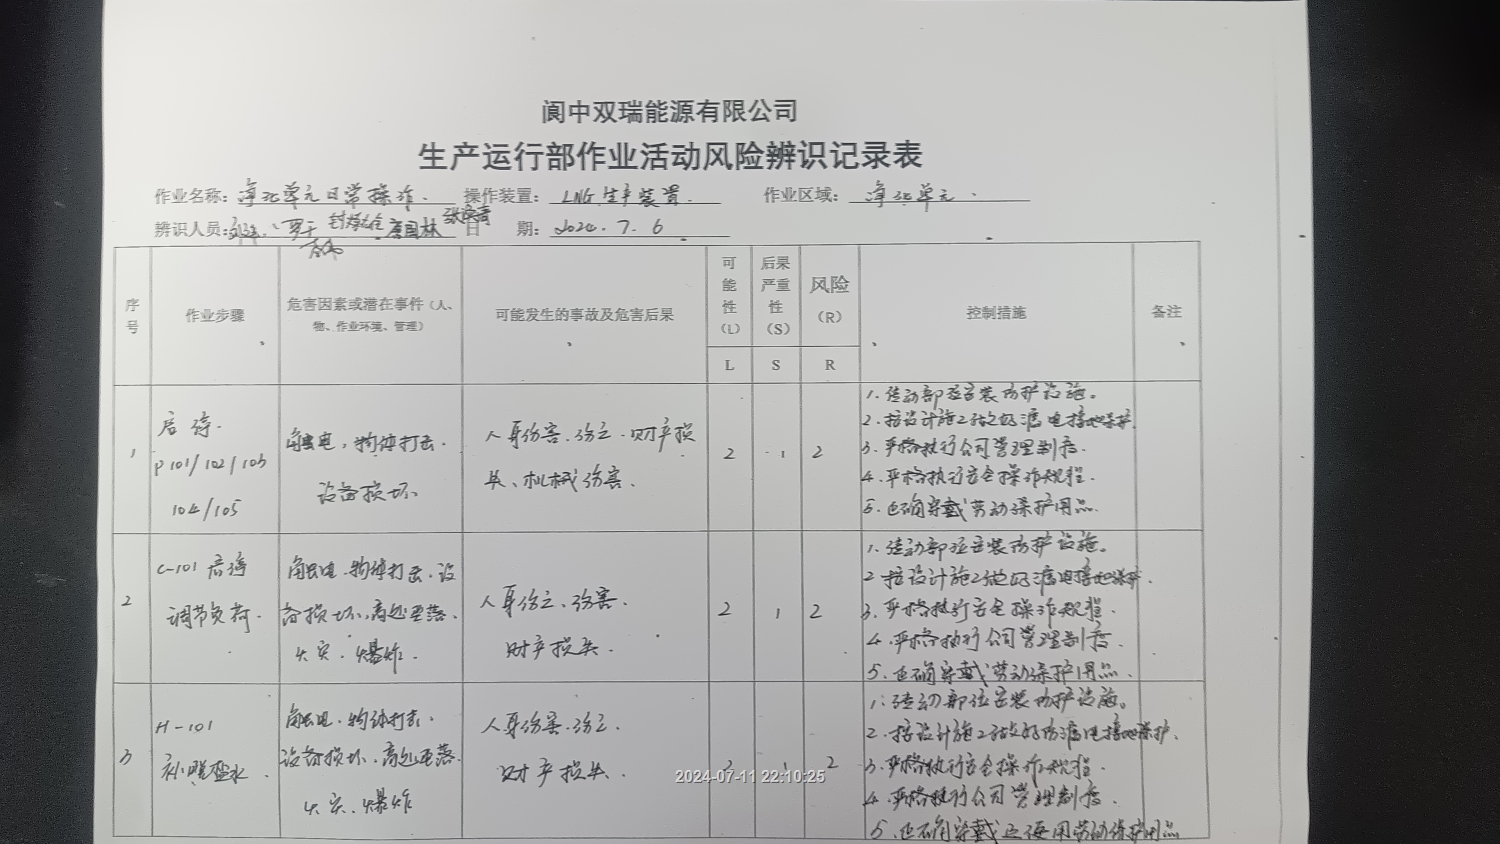 阆中双瑞能源有限公司
生产运行部作业活动风险辨识记录表
作业名称: 净化单元日常操作. 操作装置: LNG生产装置. 作业区域: 净化单元.
辨识人员: 罗于 唐国林 日 期: 2024.7.6
序号 作业步骤 危害因素或潜在事件(人、物、作业环境、管理) 可能发生的事故及危害后果 可能性(L) 后果严重性(S) 风险(R) 控制措施 备注
L S R
1
启停.
P101/102/103
104/105
触电,物体打击.
设备损坏
人身伤害.伤亡.财产损
失、机械伤害.
2 1 2
1.转动部位安装防护设施。
2.按设计施工做好漏电接地保护.
3.严格执行公司管理制度.
4.严格执行安全操作规程.
5.正确穿戴劳动保护用品.
2
C-101启停
调节负荷.
触电.物体打击.设
备损坏.高处坠落.
火灾.爆炸.
人身伤亡、伤害.
财产损失.
2 1 2
1.转动部位安装防护设施。
2按设计施工做好漏电接地保护.
3.严格执行安全操作规程.
4.严格执行公司管理制度.
5.正确穿戴劳动保护用品.
3
H-101
补脱盐水.
触电.物体打击.
设备损坏、高处坠落.
火灾.爆炸
人身伤害.伤亡.
财产损失.
2 1 2
1.转动部位安装防护设施。
2.按设计施工做好防漏电接地保护.
3.严格执行安全操作规程.
4.严格执行公司管理制度.
5.正确穿戴正使用劳动保护用品
2024-07-11 22:10:25